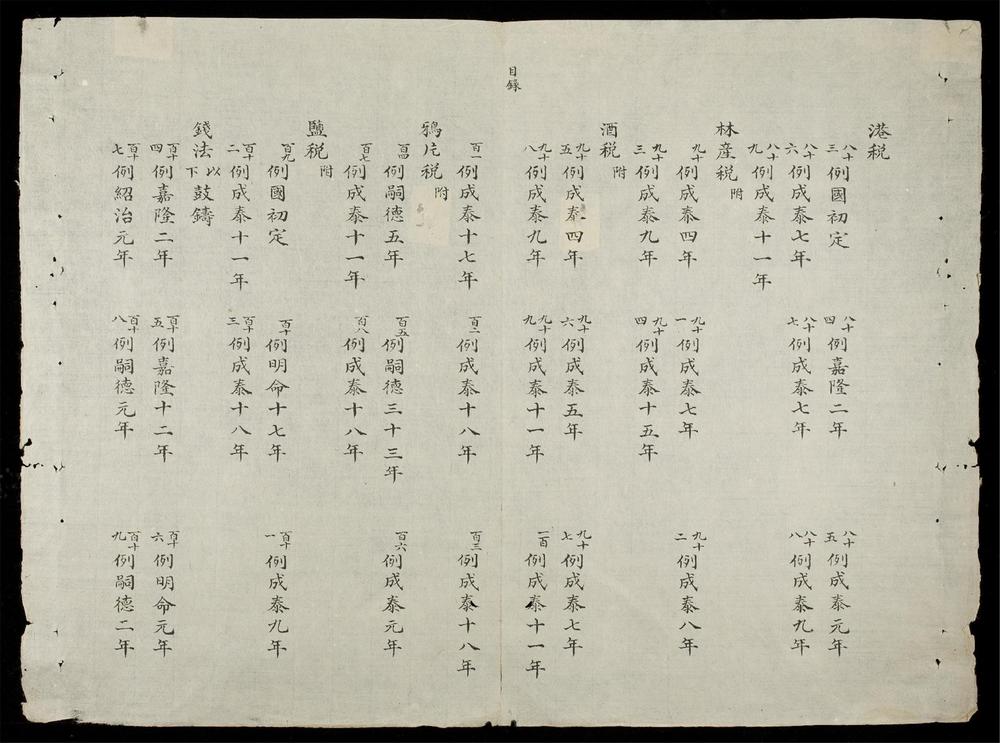 目錄
港税
八十三例國初定 八十四例嘉隆二年 八十五例成泰元年
八十六例成泰七年 八十七例成泰七年 八十八例成泰九年
八十九例成泰十一年
林産税附
九十例成泰四年 九十一例成泰七年 九十二例成泰八年
九十三例成泰九年 九十四例成泰十五年
酒税附
九十五例成泰四年 九十六例成泰五年 九十七例成泰七年
九十八例成泰九年 九十九例成泰十一年 一百例成泰十一年
百一例成泰十七年 百二例成泰十八年 百三例成泰十八年
鴉片税附
百四例嗣德五年 百五例嗣德三十三年 百六例成泰元年
百七例成泰十一年 百八例成泰十八年
鹽税附
百九例國初定 百十例明命十七年 百十一例成泰九年
百十二例成泰十一年 百十三例成泰十八年
錢法以下鼓鑄
百十四例嘉隆二年 百十五例嘉隆十二年 百十六例明命元年
百十七例紹治元年 百十八例嗣德元年 百十九例嗣德二年